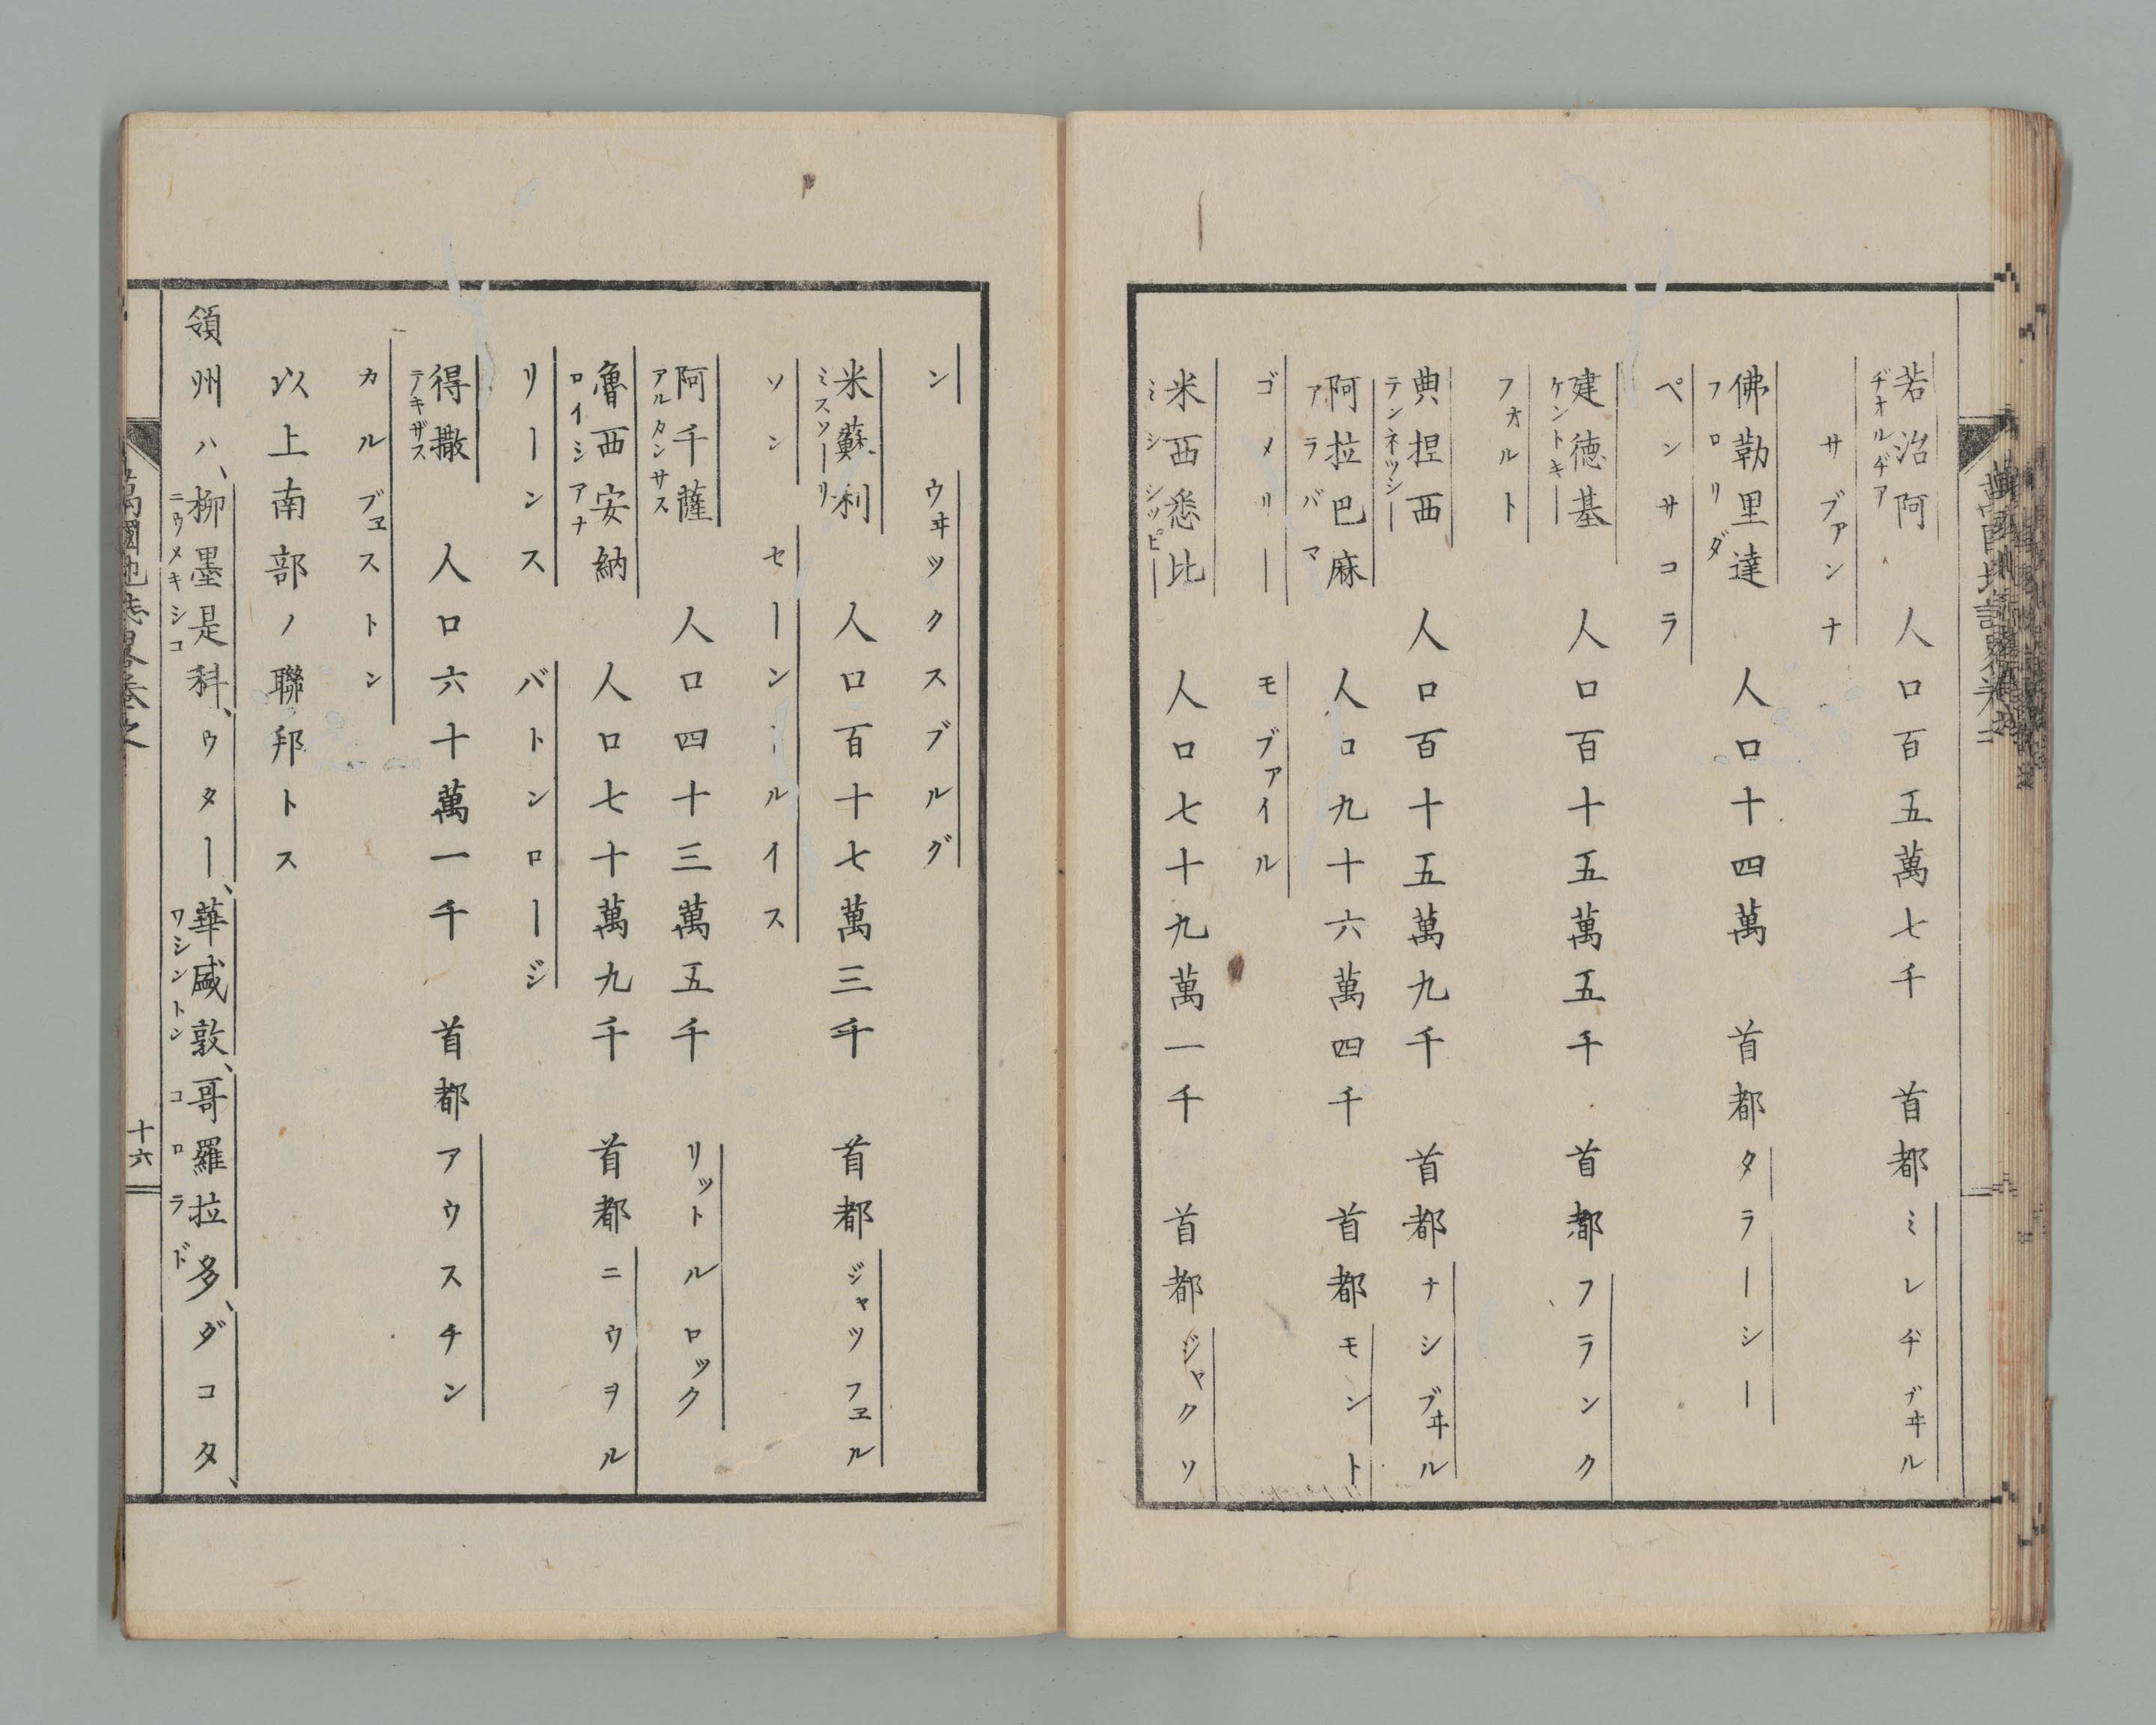 若治阿 人口百五萬七千 首都ミレヂブヰル
ヂオルヂア
サブァンナ
佛勒里達 人口十四萬 首都タラーシー
フロリダ
ペンサコラ
建徳基 人口百十五萬五千 首都フランク
ケントキー
フォルト
典捏西 人口百十五萬九千 首都ナシブヰル
テンネツシー
阿拉巴麻 人口九十六萬四千 首都モント
アラバマ
ゴメリー モブァイル
米西悉比 人口七十九萬一千 首都ジャクソ
ミシシッピー
ン ウヰックスブルグ
米蘇利 人口百十七萬三千 首都ジャツフヱル
ミスソーリ
ソン セーンールイス
阿千薩 人口四十三萬五千 リットルロック
アルカンサス
魯西安納 人口七十萬九千 首都ニウヲル
ロイシアナ
リーンス バトンロージ
得撒 人口六十萬一千 首都アウスチン
テキザス
カルブヱストン
以上南部ノ聯邦トス
領州ハ、柳墨是科、ウター、華盛敦、哥羅拉多、ダコタ、
ニウメキシコ ワシントン コロラド
萬國地誌畧卷之
十六